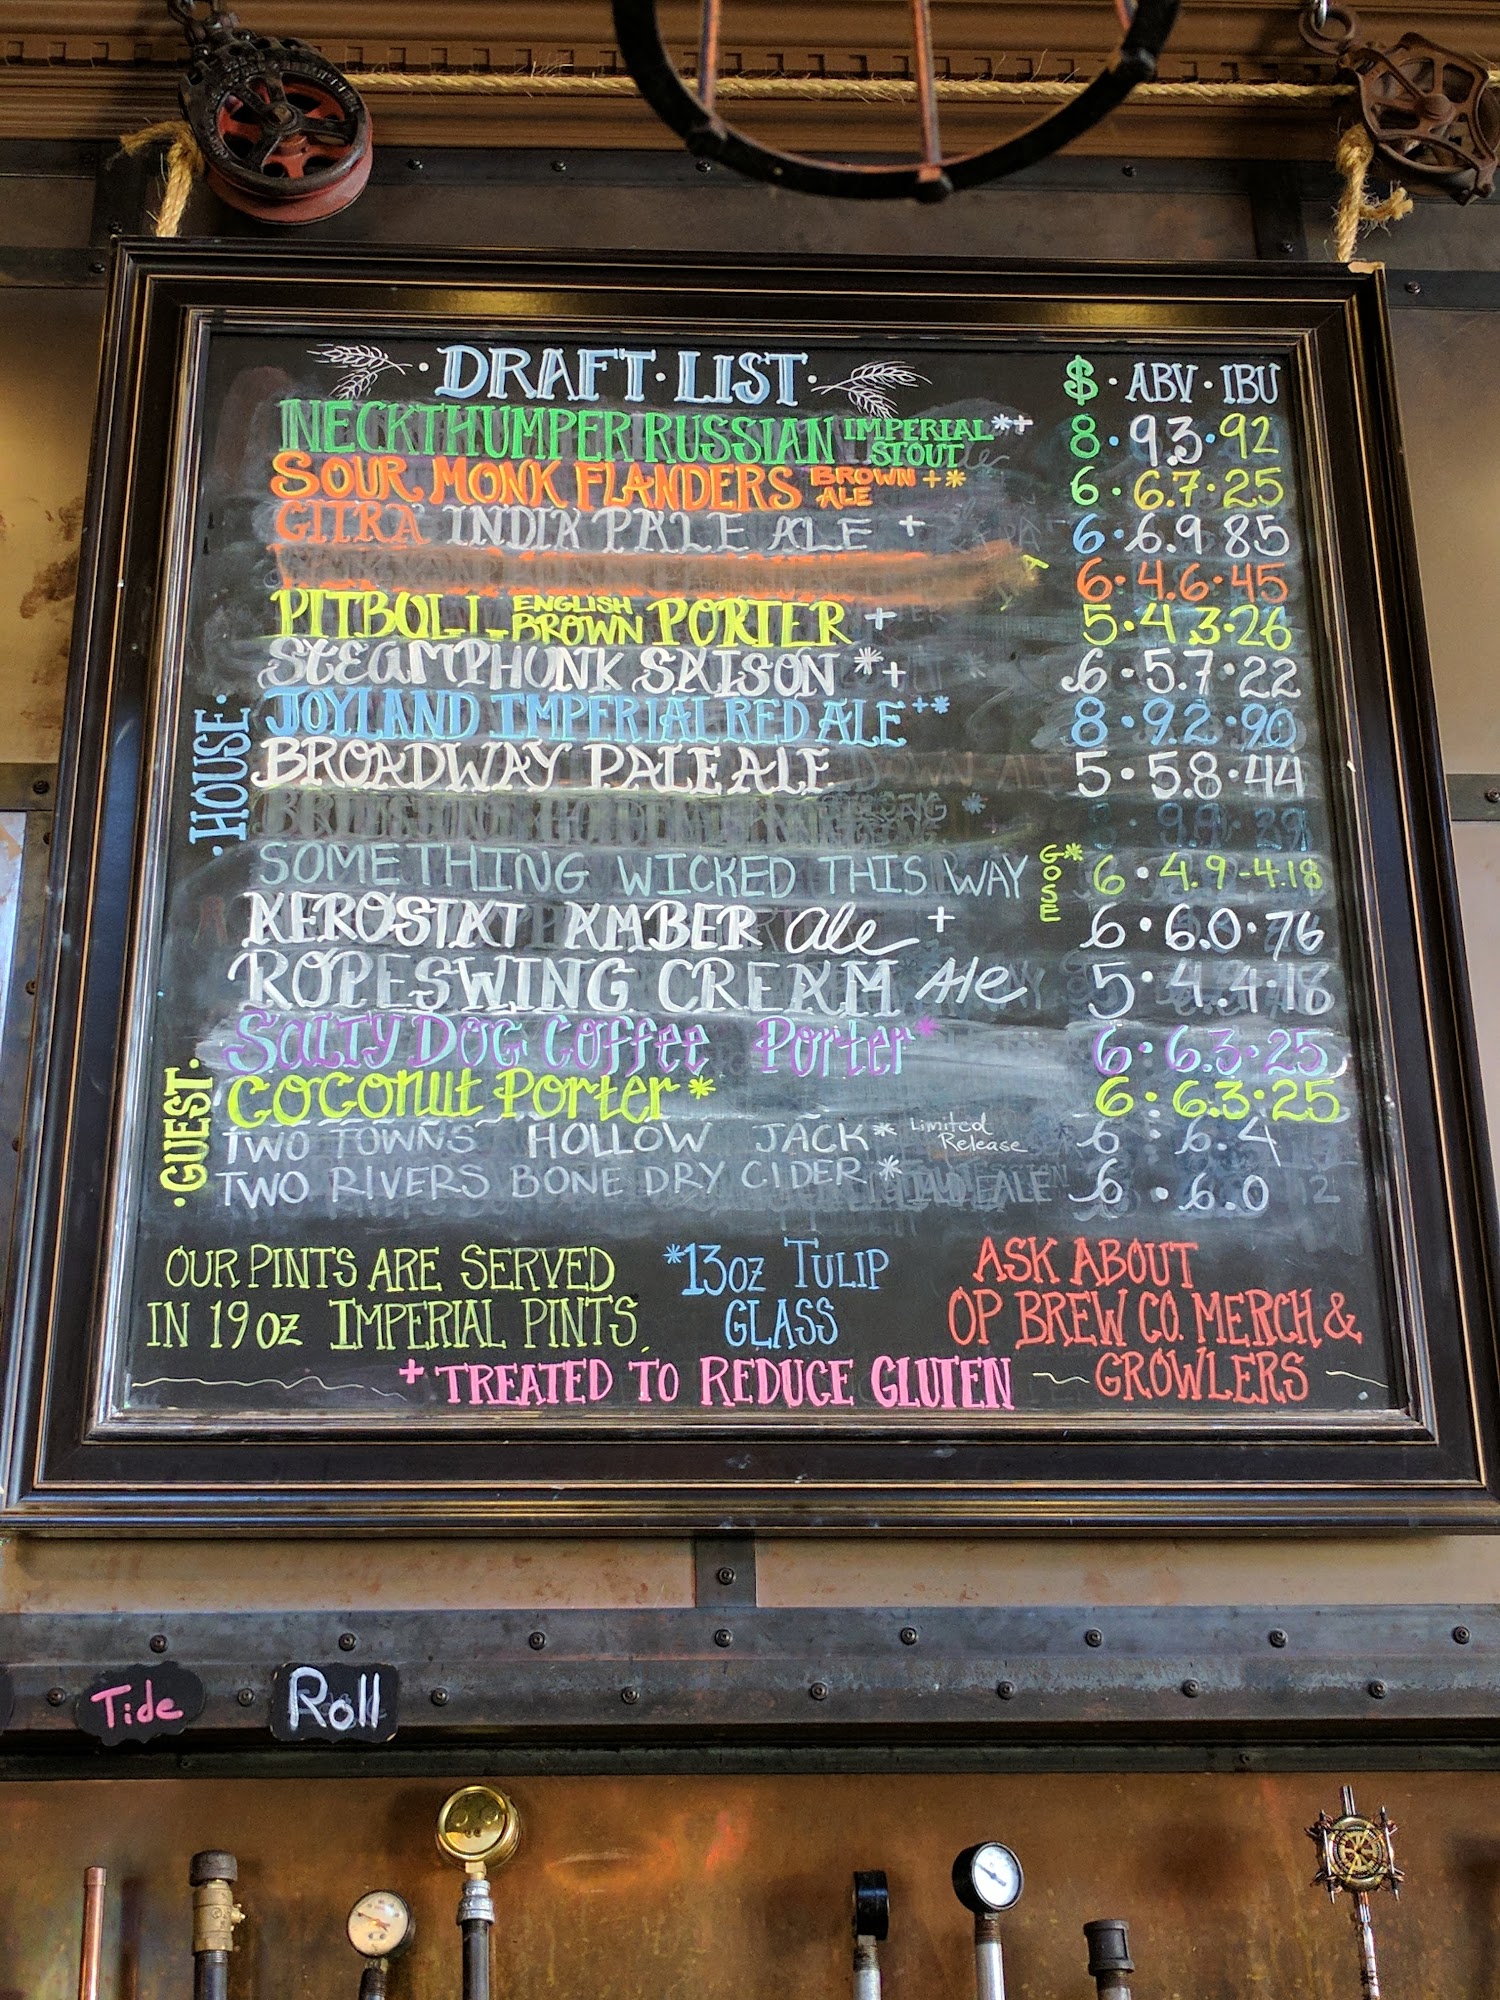 DRAFT · LIST · $ · ABV · IBU
NECKTHUMPER RUSSIAN IMPERIAL STOUT *+ 8 · 9.3 · 92
SOUR MONK FLANDERS BROWN ALE +* 6 · 6.7 · 25
CITRA INDIA PALE ALE + 6 · 6.9 85
6 · 4.6 · 45
PITBULL ENGLISH BROWN PORTER + 5 · 4.3 · 26
STEAMPHUNK SAISON *+ 6 · 5.7 · 22
JOYLAND IMPERIAL RED ALE +* 8 · 9.2 · 90
BROADWAY PALE ALE 5 · 5.8 · 44
· HOUSE ·
SOMETHING WICKED THIS WAY GOSE * 6 · 4.9 - 4.18
AEROSTAT AMBER Ale + 6 · 6.0 · 76
ROPESWING CREAM Ale 5 · 4.4 · 18
SALTY DOG Coffee Porter * 6 · 6.3 · 25
COCONUT Porter * 6 · 6.3 · 25
· GUEST ·
TWO TOWNS HOLLOW JACK * Limited Release 6 : 6.4
TWO RIVERS BONE DRY CIDER * 6 · 6.0
OUR PINTS ARE SERVED
IN 19 oz IMPERIAL PINTS.
*13oz TULIP
GLASS
ASK ABOUT
OP BREW CO. MERCH &
GROWLERS
+ TREATED TO REDUCE GLUTEN
Tide
Roll